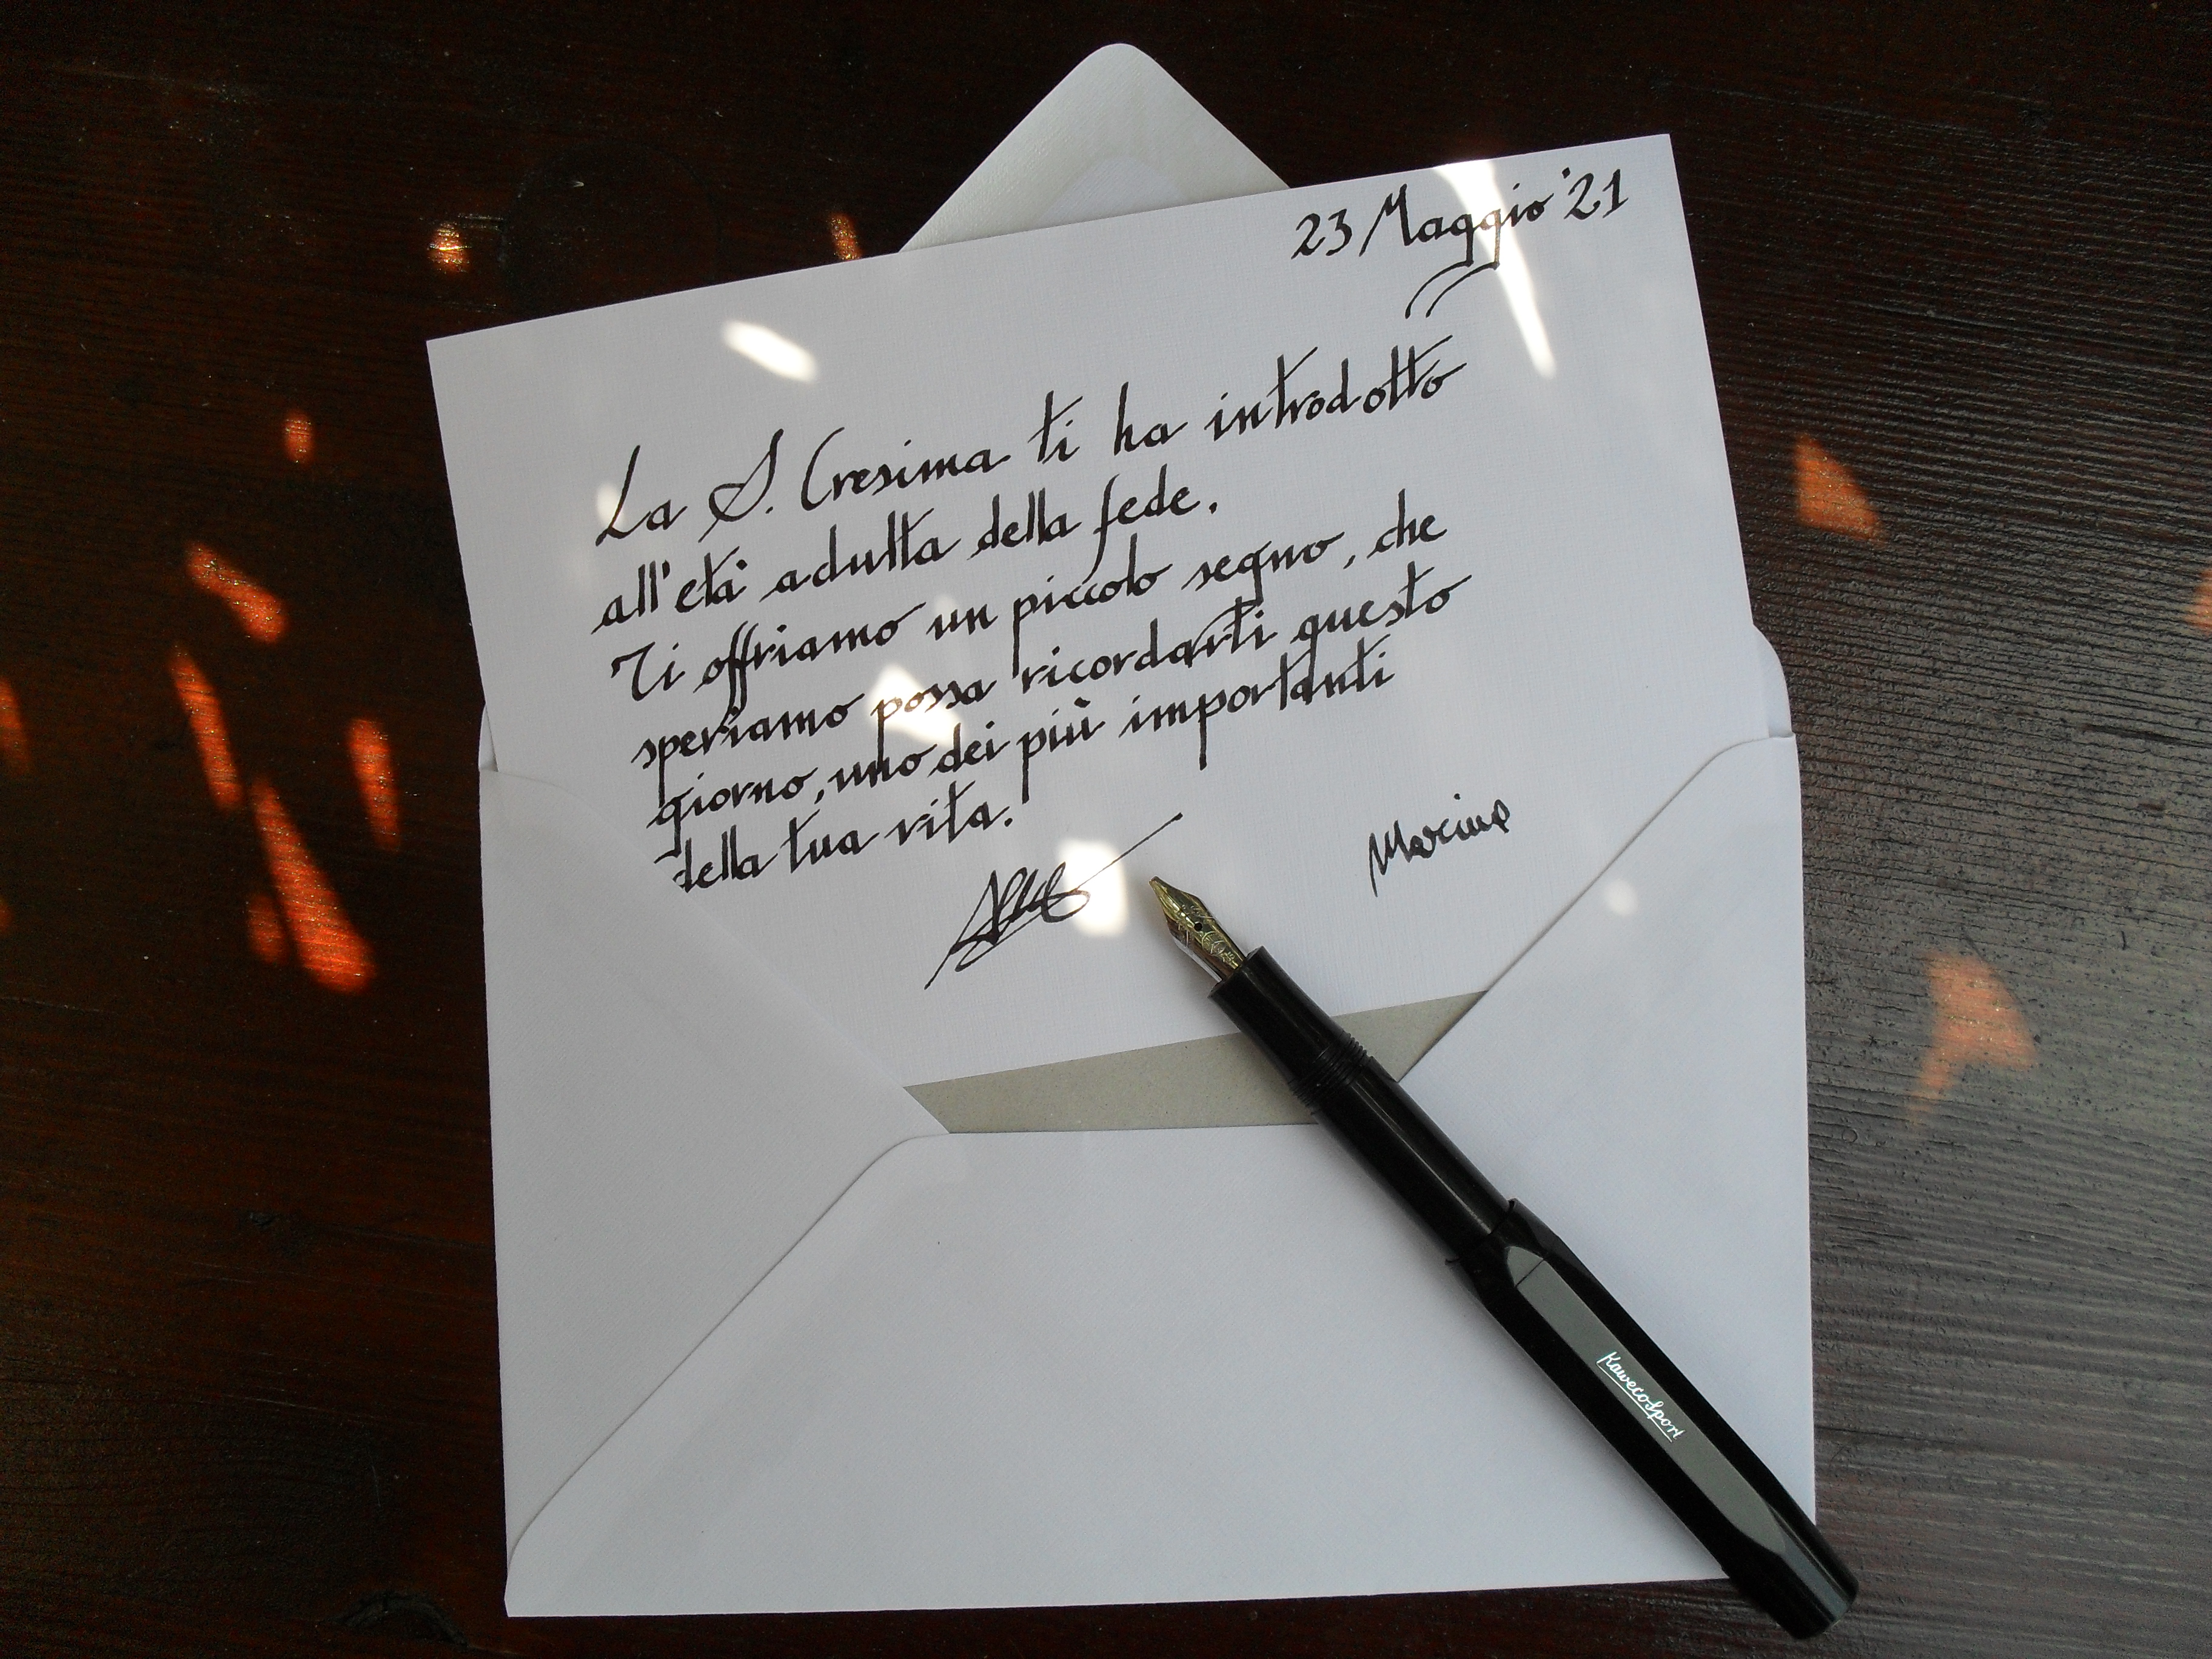 23 Maggio '21
La S. Cresima ti ha introdotto
all'età adulta della fede.
Ti offriamo un piccolo segno, che
speriamo possa ricordarti questo
giorno, uno dei più importanti
della tua vita.
KawecoSport